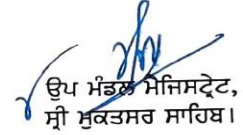 ਉਪ ਮੰਡਲ ਮੈਜਿਸਟ੍ਰੇਟ,
ਸ੍ਰੀ ਮੁਕਤਸਰ ਸਾਹਿਬ।